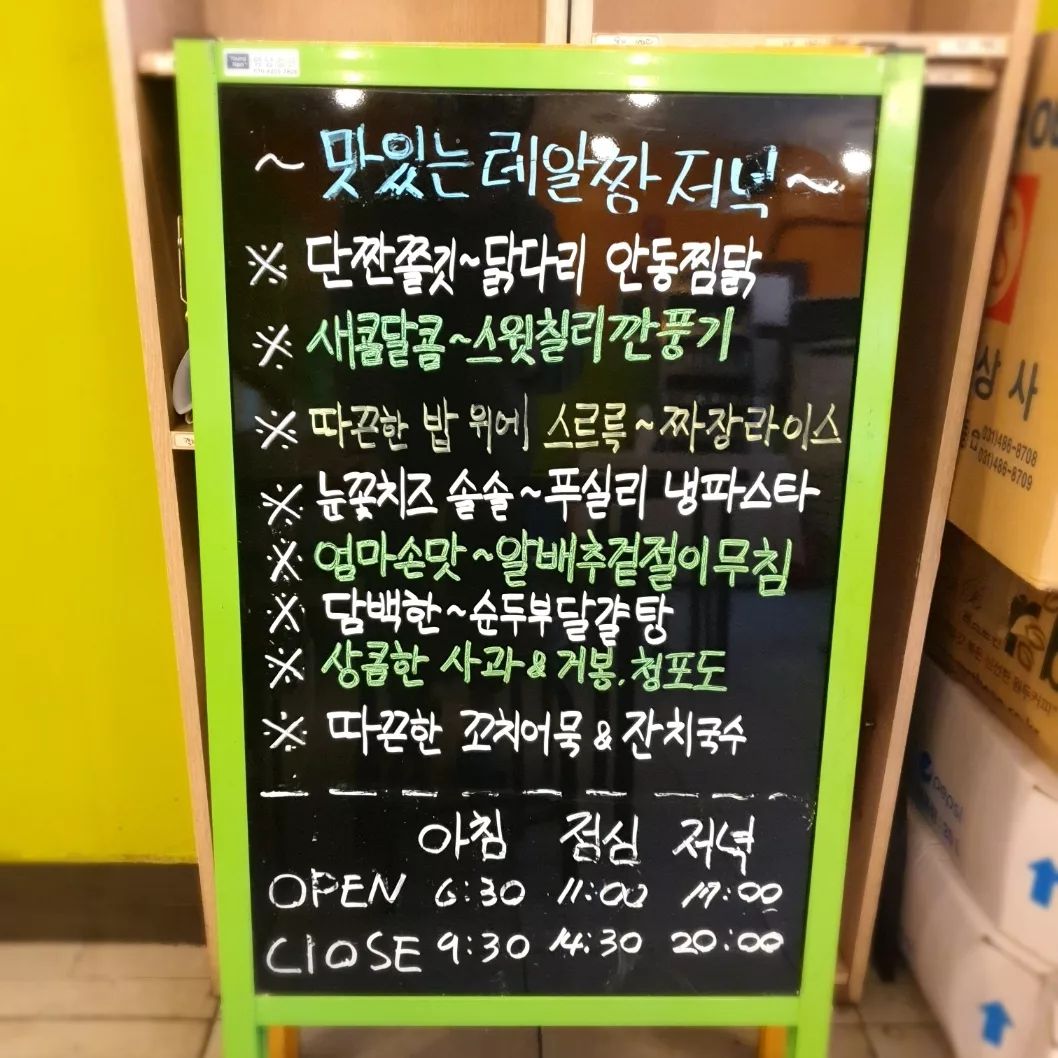 ~ 맛있는 레알짱 저녁 ~
※ 단짠쫄깃~닭다리 안동찜닭
※ 새콤달콤~스윗칠리깐풍기
※ 따끈한 밥 위에 스르륵~짜장라이스
※ 눈꽃치즈 솔솔~푸실리 냉파스타
※ 엄마손맛~알배추겉절이무침
※ 담백한~순두부달걀탕
※ 상콤한 사과&거봉.청포도
※ 따끈한 꼬치어묵&잔치국수
아침 점심 저녁
OPEN 6:30 11:00 17:00
ClOSE 9:30 14:30 20:00
상사
031)486-8708
031)486-8709
pepsi